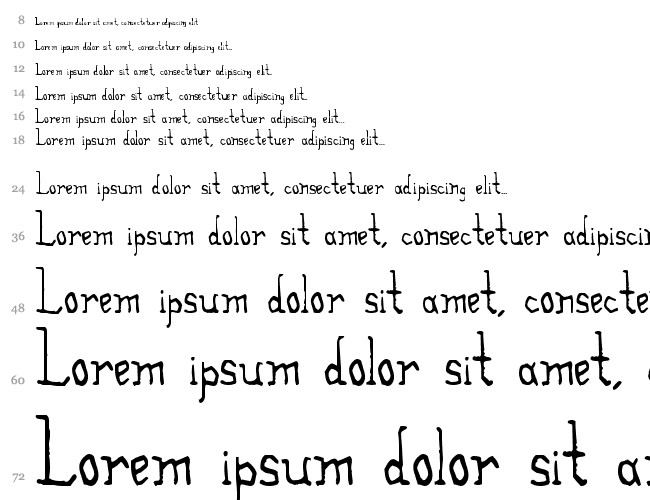 8 Lorem ipsum dolor sit amet, consectetuer adipiscing elit
10 Lorem ipsum dolor sit amet, consectetuer adipiscing elit...
12 Lorem ipsum dolor sit amet, consectetuer adipiscing elit.
14 Lorem ipsum dolor sit amet, consectetuer adipiscing elit..
16 Lorem ipsum dolor sit amet, consectetuer adipiscing elit...
18 Lorem ipsum dolor sit amet, consectetuer adipiscing elit...
24 Lorem ipsum dolor sit amet, consectetuer adipiscing elit...
36 Lorem ipsum dolor sit amet, consectetuer adipiscin
48 Lorem ipsum dolor sit amet, consecte
60 Lorem ipsum dolor sit amet,
72 Lorem ipsum dolor sit a